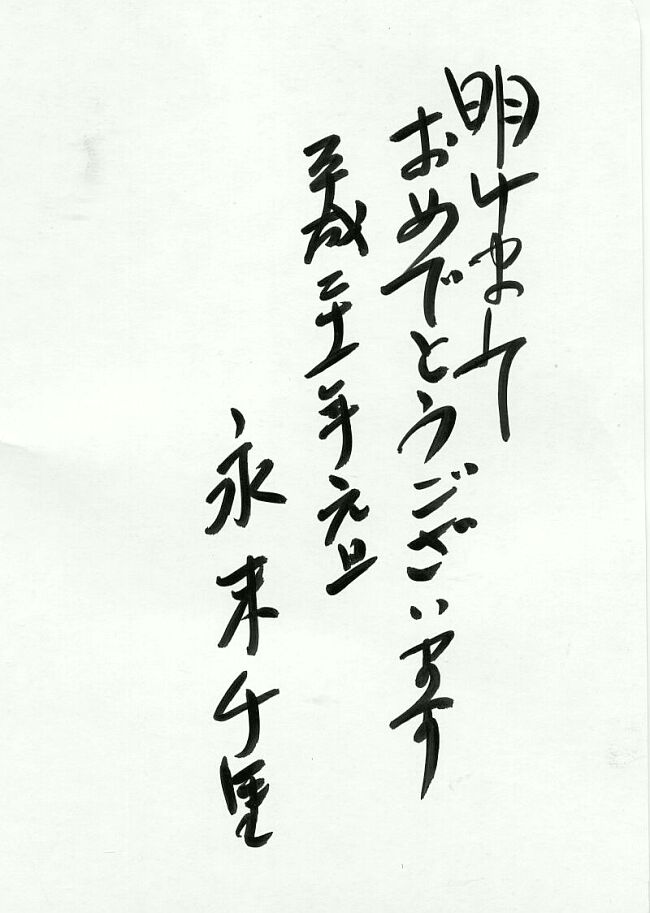 明けまして
おめでとうございます
平成二十一年元旦
永末千里